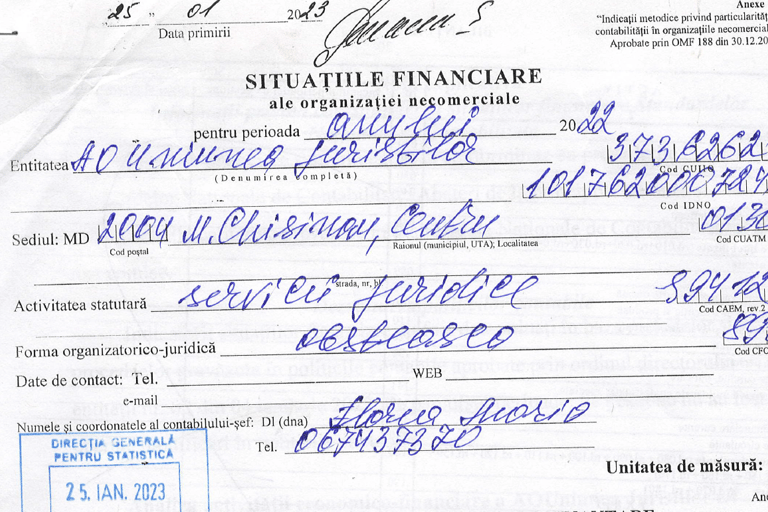 Anexe
"25" 01 2023
Data primirii
"Indicații metodice privind particularităț
contabilității în organizațiile necomercial
Aprobate prin OMF 188 din 30.12.20
SITUAȚIILE FINANCIARE
ale organizației necomerciale
pentru perioada anului 2022
Entitatea AO Uniunea Juriștilor 3736262
(Denumirea completă) Cod CUIÎO
101762000724
Cod IDNO
Sediul: MD 2004 M. Chisinau, Centru 0130
Cod poștal Raionul (municipiul, UTA); Localitatea Cod CUATM
strada, nr, bl
Activitatea statutară servicii juridice S9412
Cod CAEM, rev.2
Forma organizatorico-juridică obstească 89
Cod CFO
Date de contact: Tel. WEB
e-mail
Numele și coordonatele al contabilului-șef: Dl (dna) Florea Maria
Tel. 067437370
DIRECȚIA GENERALĂ
PENTRU STATISTICĂ
25. IAN. 2023
Unitatea de măsură: